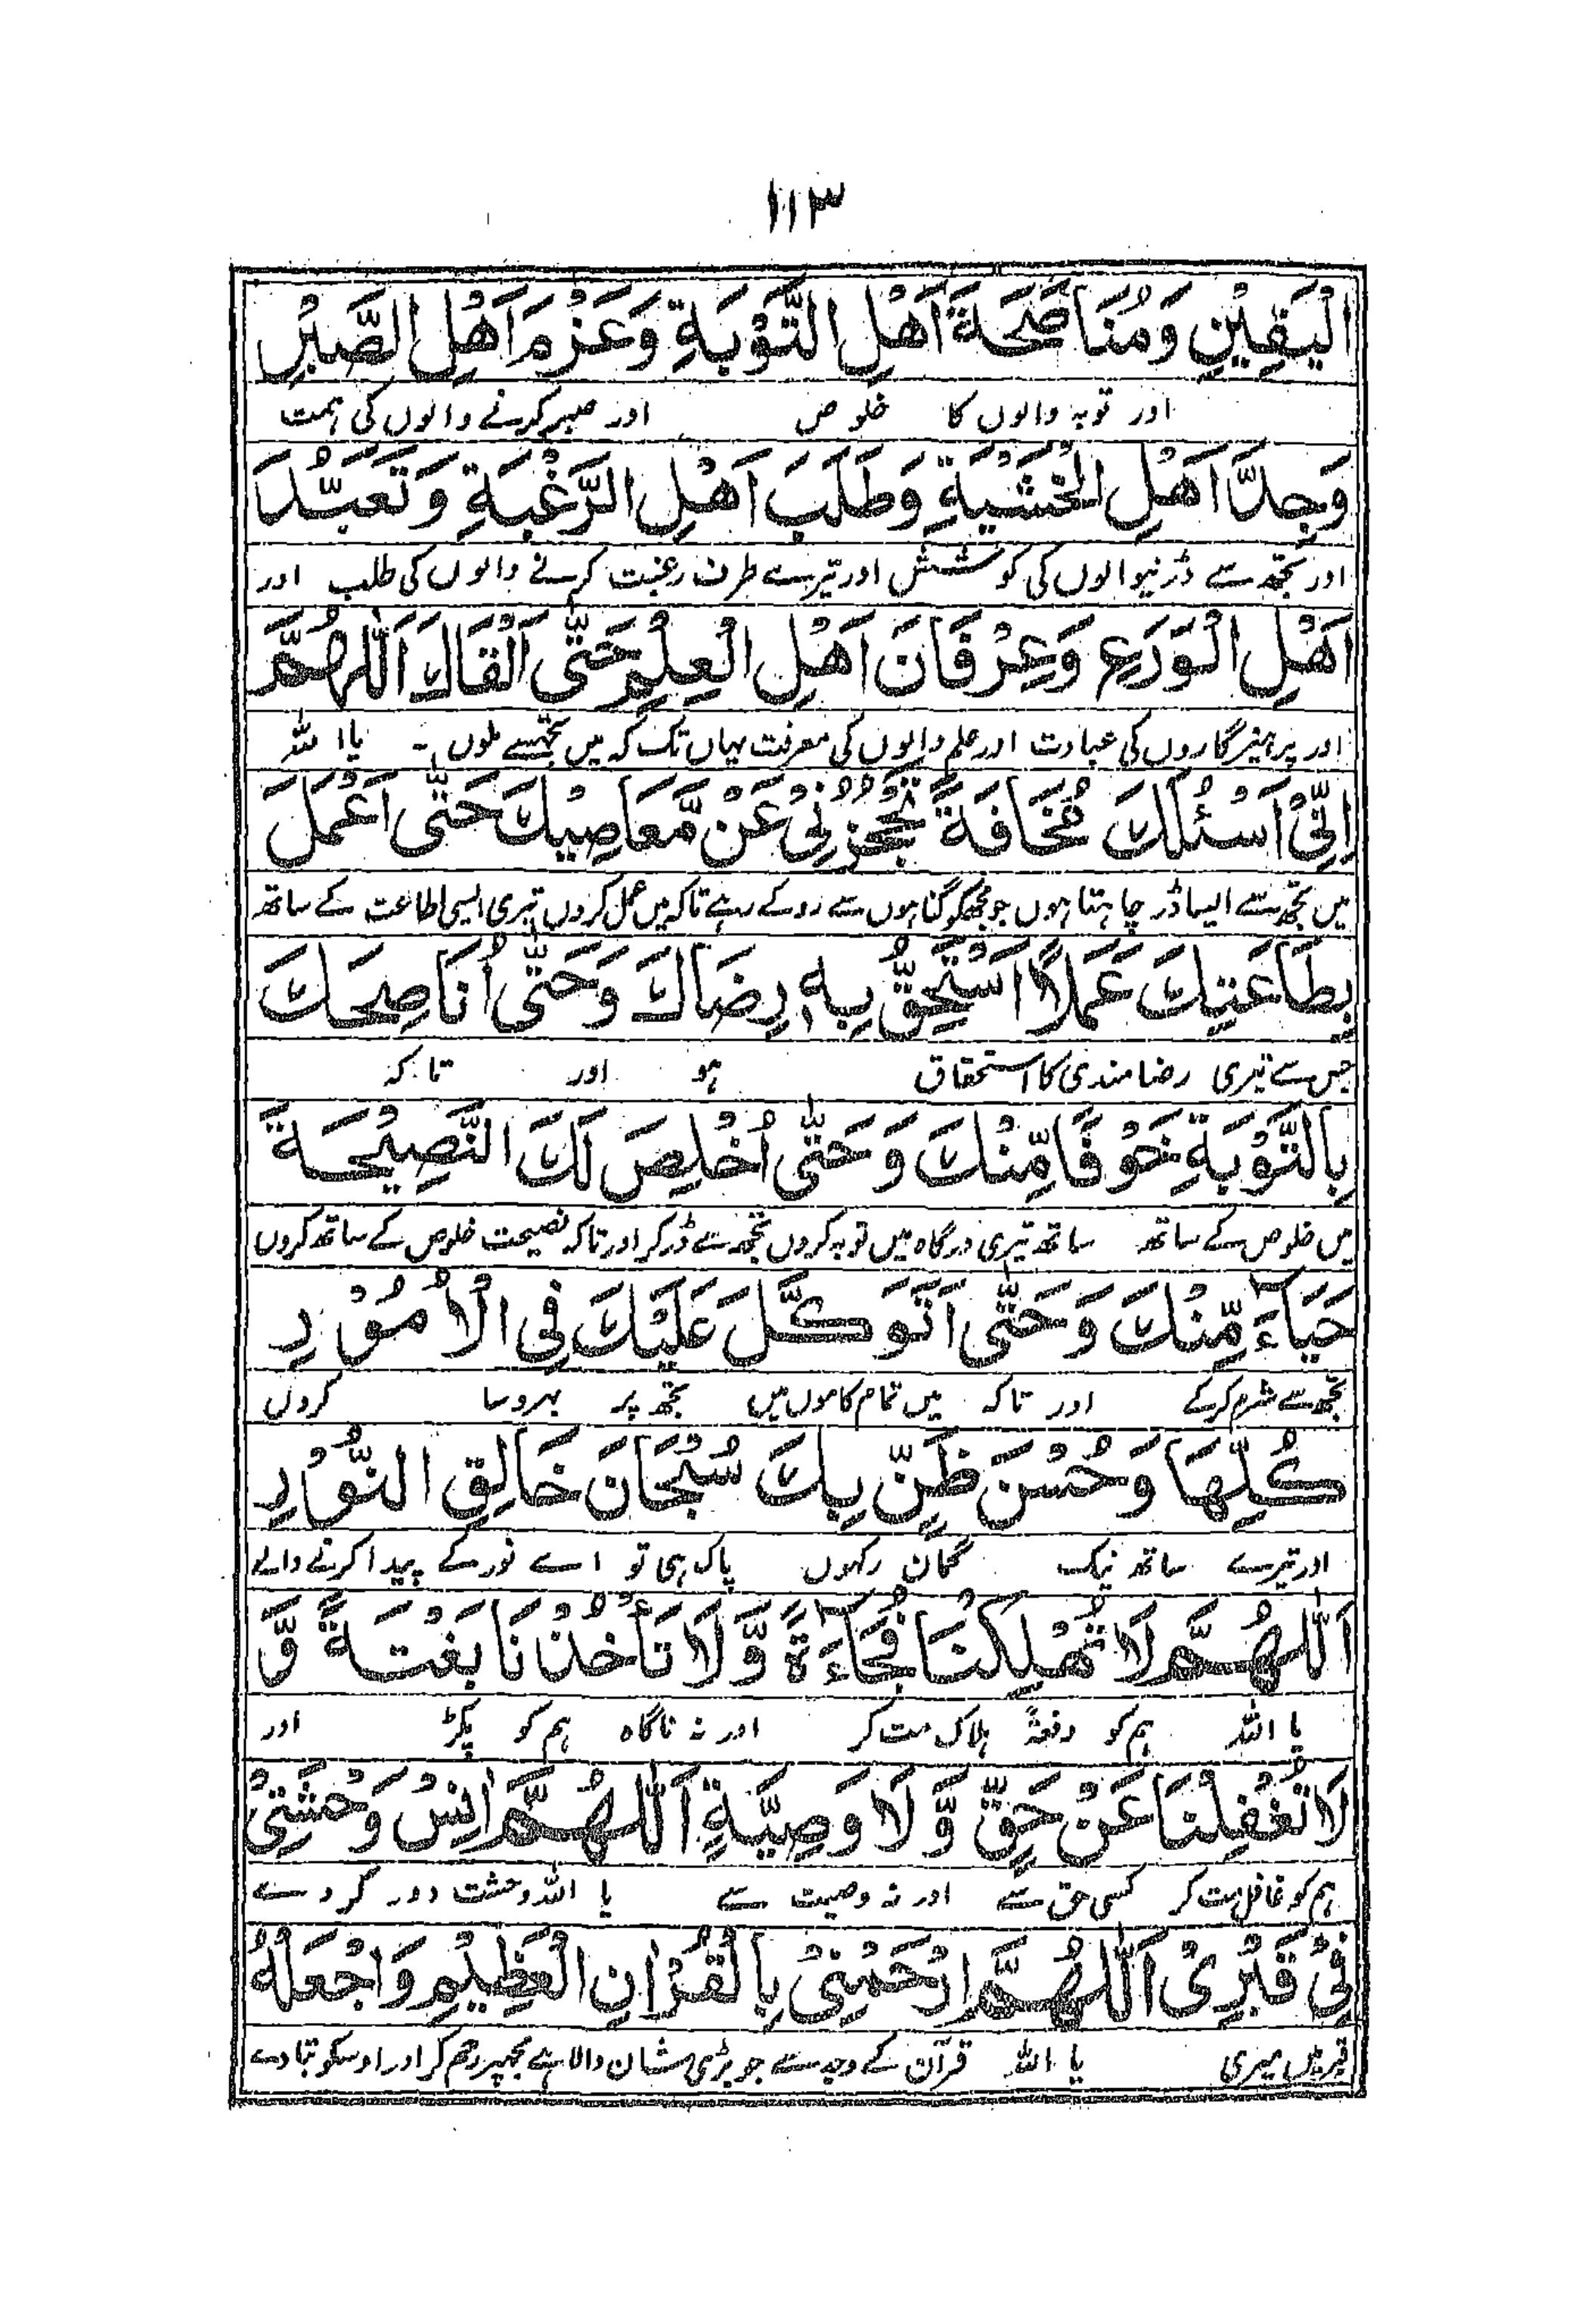 ١١٣
الْيَقِيْنِ وَمُنَاصَحَةَ اَهْلِ التَّوْبَةِ وَعَزْمَ اَهْلِ الصَّبْرِ
اور توبہ والوں کا خلوص اور صبر کرنے والوں کی ہمت
وَجِدَّ اَهْلِ الْخَشْيَةِ وَطَلَبَ اَهْلِ الرَّغْبَةِ وَتَعَبُّدَ
اور تجھ سے ڈرنیوالوں کی کوشش اور تیرے طرف رغبت کرنے والوں کی طلب اور
اَهْلِ الْوَرَعِ وَعِرْفَانَ اَهْلِ الْعِلْمِ حَتّٰى اَلْقَاكَ اَللّٰهُمَّ
اور پرہیزگاروں کی عبادت اور علم والوں کی معرفت یہاں تک کہ میں تجھسے ملوں ۔ یا اللہ
اِنِّىْ اَسْئَلُكَ مَخَافَةً تَحْجُزُنِىْ عَنْ مَّعَاصِيْكَ حَتّٰى اَعْمَلَ
میں تجھ سے ایسا ڈر چاہتا ہوں جو مجھکو گناہوں سے روکے رہے تاکہ میں عمل کروں تیری ایسی اطاعت کے ساتھ
بِطَاعَتِكَ عَمَلًا اَسْتَحِقُّ بِهٖ رِضَاكَ وَحَتّٰى اُنَاصِحَكَ
جس سے تیری رضامندی کا استحقاق ہو اور تاکہ
بِالتَّوْبَةِ خَوْفًا مِّنْكَ وَحَتّٰى اُخْلِصَ لَكَ النَّصِيْحَةَ
میں خلوص کے ساتھ ساتھ تیری درگاہ میں توبہ کروں تجھ سے ڈر کر اور تاکہ نصیحت خلوص کے ساتھ کروں
حَيَآءً مِّنْكَ وَحَتّٰى اَتَوَكَّلَ عَلَيْكَ فِى الْاُمُوْرِ
تجھ سے شرم کرکے اور تاکہ میں تمام کاموں میں تجھ پر بہروسا کروں
كُلِّهَا وَحُسْنَ ظَنٍّ بِكَ سُبْحَانَ خَالِقِ النُّوْرِ
اور تیرے ساتھ نیک گمان رکہوں پاک ہی تو اے نور کے پیدا کرنے والے
اَللّٰهُمَّ لَا تُهْلِكْنَا فُجَآءَةً وَّلَا تَأْخُذْنَا بَغْتَةً وَّ
یا اللہ ہم کو دفعۃً ہلاک مت کر اور نہ ناگاہ ہم کو پکڑ اور
لَا تُغْفِلْنَا عَنْ حَقٍّ وَّلَا وَصِيَّةٍ اَللّٰهُمَّ اٰنِسْ وَحْشَتِىْ
ہم کو غافل مت کر کسی حق سے اور نہ وصیت سے یا اللہ وحشت دور کر دے
فِىْ قَبْرِىْ اَللّٰهُمَّ ارْحَمْنِىْ بِالْقُرْاٰنِ الْعَظِيْمِ وَاجْعَلْهُ
قبر میں میری یا اللہ قرآن کے وجہ سے جو بڑی شان والا ہے مجھپر رحم کر اور اوسکو بنا دے